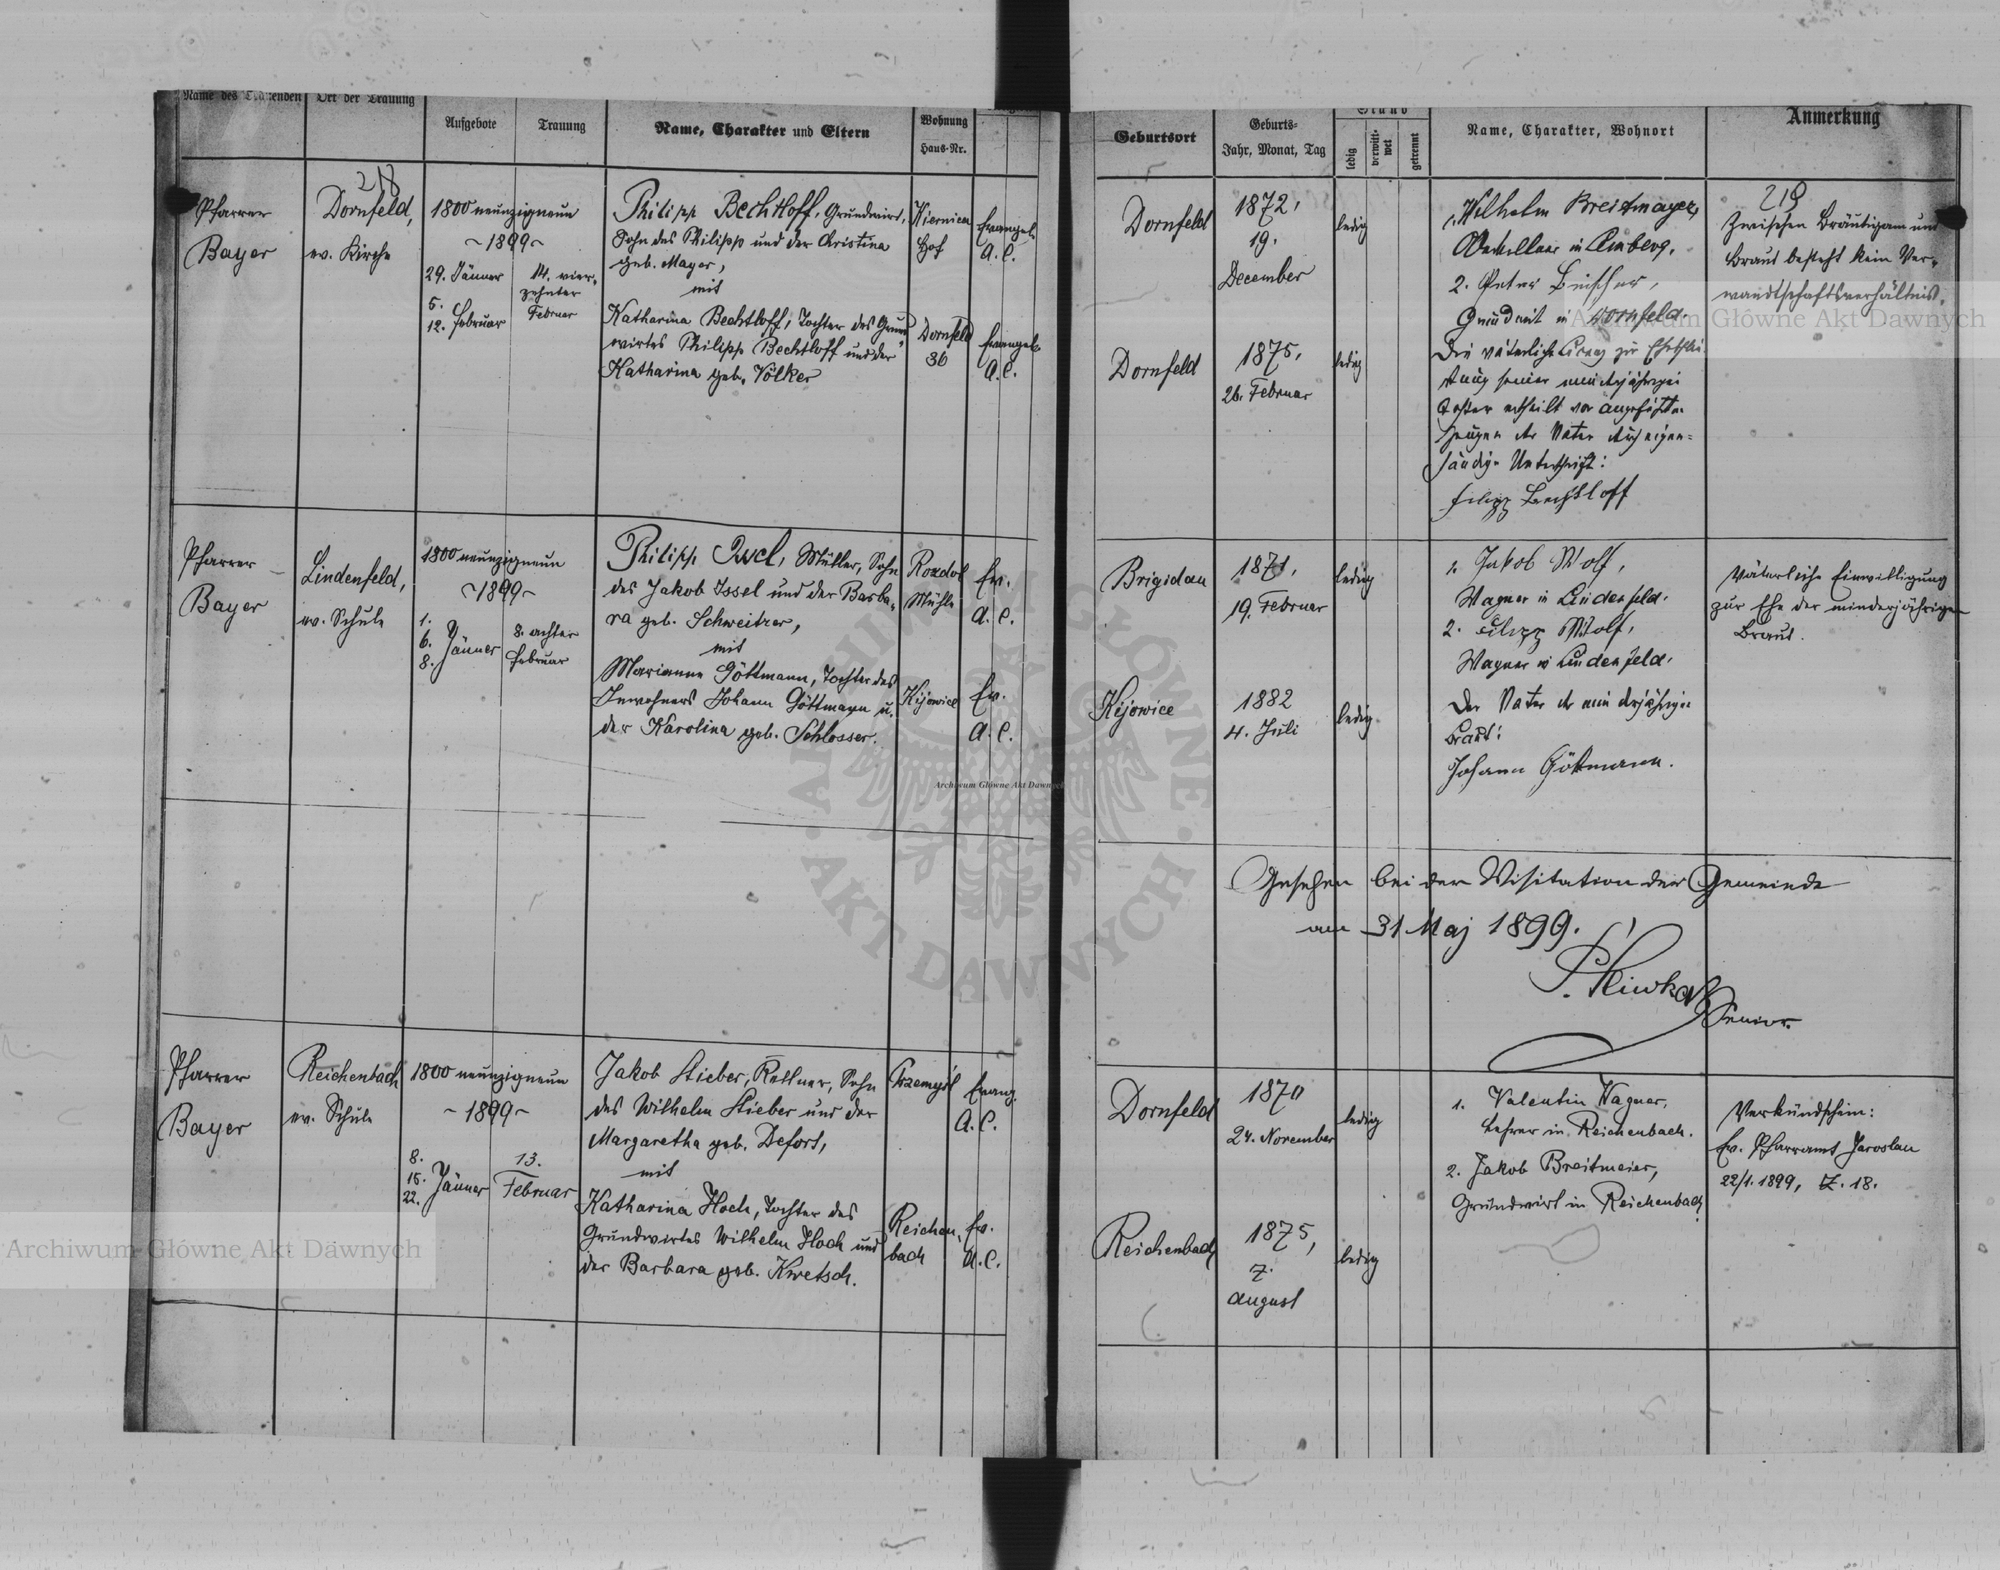 Name des Trauenden
Ort der Trauung
Aufgebote
Trauung
Name, Charakter und Eltern
Wohnung
Haus-Nr.
218
Pfarrer
Bayer
Dornfeld,
ev. Kirche
1800 neunzigneun
~1899~
29. Jänner
5.
12. Februar
14. vier-
zehnter
Februar
Philipp Bechtloff, Grundwirt,
Sohn des Philipp und der Christina
geb. Mayer,
mit
Katharina Bechtloff, Tochter des Grund
wirtes Philipp Bechtloff und der
Katharina geb. Völker
Kiernica
Hof
Dornfeld
36
Evangel.
A. C.
Evangel.
A. C.
Pfarrer
Bayer
Lindenfeld,
ev. Schule
1800 neunzigneun
~1899~
1.
6. Jänner
8.
8. achter
Februar
Philipp Issel, Müller, Sohn
des Jakob Issel und der Barba-
ra geb. Schweitzer,
mit
Marianna Göttmann, Tochter des
Inwohners Johann Göttmann u.
der Karolina geb. Schlosser.
Rozdol
Mühle
Kijowice
Ev.
A. C.
Ev.
A. C.
Pfarrer
Bayer
Reichenbach
ev. Schule
1800 neunzigneun
~1899~
8.
15. Jänner
22.
13.
Februar
Jakob Stieber, Kellner, Sohn
des Wilhelm Stieber und der
Margaretha geb. Defort,
mit
Katharina Hoch, Tochter des
Grundwirtes Wilhelm Hoch und
der Barbara geb. Kwetsch.
Przemyśl
Reichen-
bach
Evang.
A. C.
Ev.
A. C.
Geburtsort
Geburts-
Jahr, Monat, Tag
Stand
ledig
verwit-
wet
getrennt
Name, Charakter, Wohnort
Anmerkung
218
Dornfeld
1872,
19.
December
ledig
Dornfeld
1875,
26. Februar
ledig
1. Wilhelm Breitmayer,
in Einberg,
2. Peter
Grundwirt in Dornfeld.
Die väterliche zur Eheschlie-
ßung seiner minderjährigen
Tochter ertheilt vor angeführten
Zeugen der Vater durch eigen-
händige Unterschrift:
Filipp Bechtloff
Zwischen Bräutigam und
Braut besteht kein Ver-
wandtschaftsverhältnis.
Brigidau
1871,
19. Februar
ledig
Kijowice
1882
4. Juli
ledig
1. Jakob Wolf,
Wagner in Lindenfeld.
2. Filipp Wolf,
Wagner in Lindenfeld.
Der Vater der minderjährigen
Braut:
Johann Göttmann.
Väterliche Einwilligung
zur Ehe der minderjährigen
Braut.
Gesehen bei der Visitation der Gemeinde
am 31 Maj 1899.
Senior.
Dornfeld
1870
24. November
ledig
Reichenbach
1875,
7.
August
ledig
1. Valentin Wagner,
Lehrer in Reichenbach.
2. Jakob Breitmeier,
Grundwirt in Reichenbach
Verkündschein:
Ev. Pfarramt Jaroslau
22/1. 1899, Z. 18.
Archiwum Główne Akt Dawnych
Archiwum Główne Akt Dawnych
Archiwum Główne Akt Dawnych
ARCHIWUM GŁÓWNE · AKT DAWNYCH ·